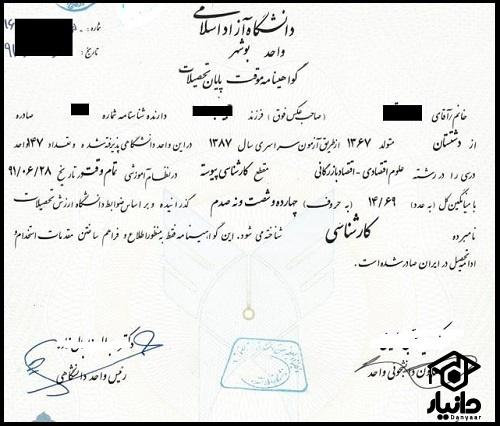 دانشگاه آزاد اسلامی
واحد بوشهر
شماره:
تاریخ:
گواهینامه موقت پایان تحصیلات
خانم/آقای (صاحب عکس فوق) فرزند دارنده شناسنامه شماره صادره
از دشتستان متولد ۱۳۶۷ از طریق آزمون سراسری سال ۱۳۸۷ در این واحد دانشگاهی پذیرفته شده و تعداد ۱۴۷ واحد
درسی را در رشته علوم اقتصادی - اقتصاد بازرگانی مقطع کارشناسی پیوسته در نظام آموزشی تمام وقت در تاریخ ۹۱/۰۶/۲۸
با میانگین کل (به عدد) ۱۴/۶۹ (به حروف) چهارده و شصت و نه صدم گذرانیده و بر اساس ضوابط دانشگاه ارزش تحصیلات
نامبرده کارشناسی شناخته می شود. این گواهینامه فقط به منظور اطلاع و فراهم ساختن مقدمات استخدام و
ادامه تحصیل در ایران صادر شده است.
رئیس واحد دانشگاهی
معاون دانشجوئی واحد
دانیار
Danyaar